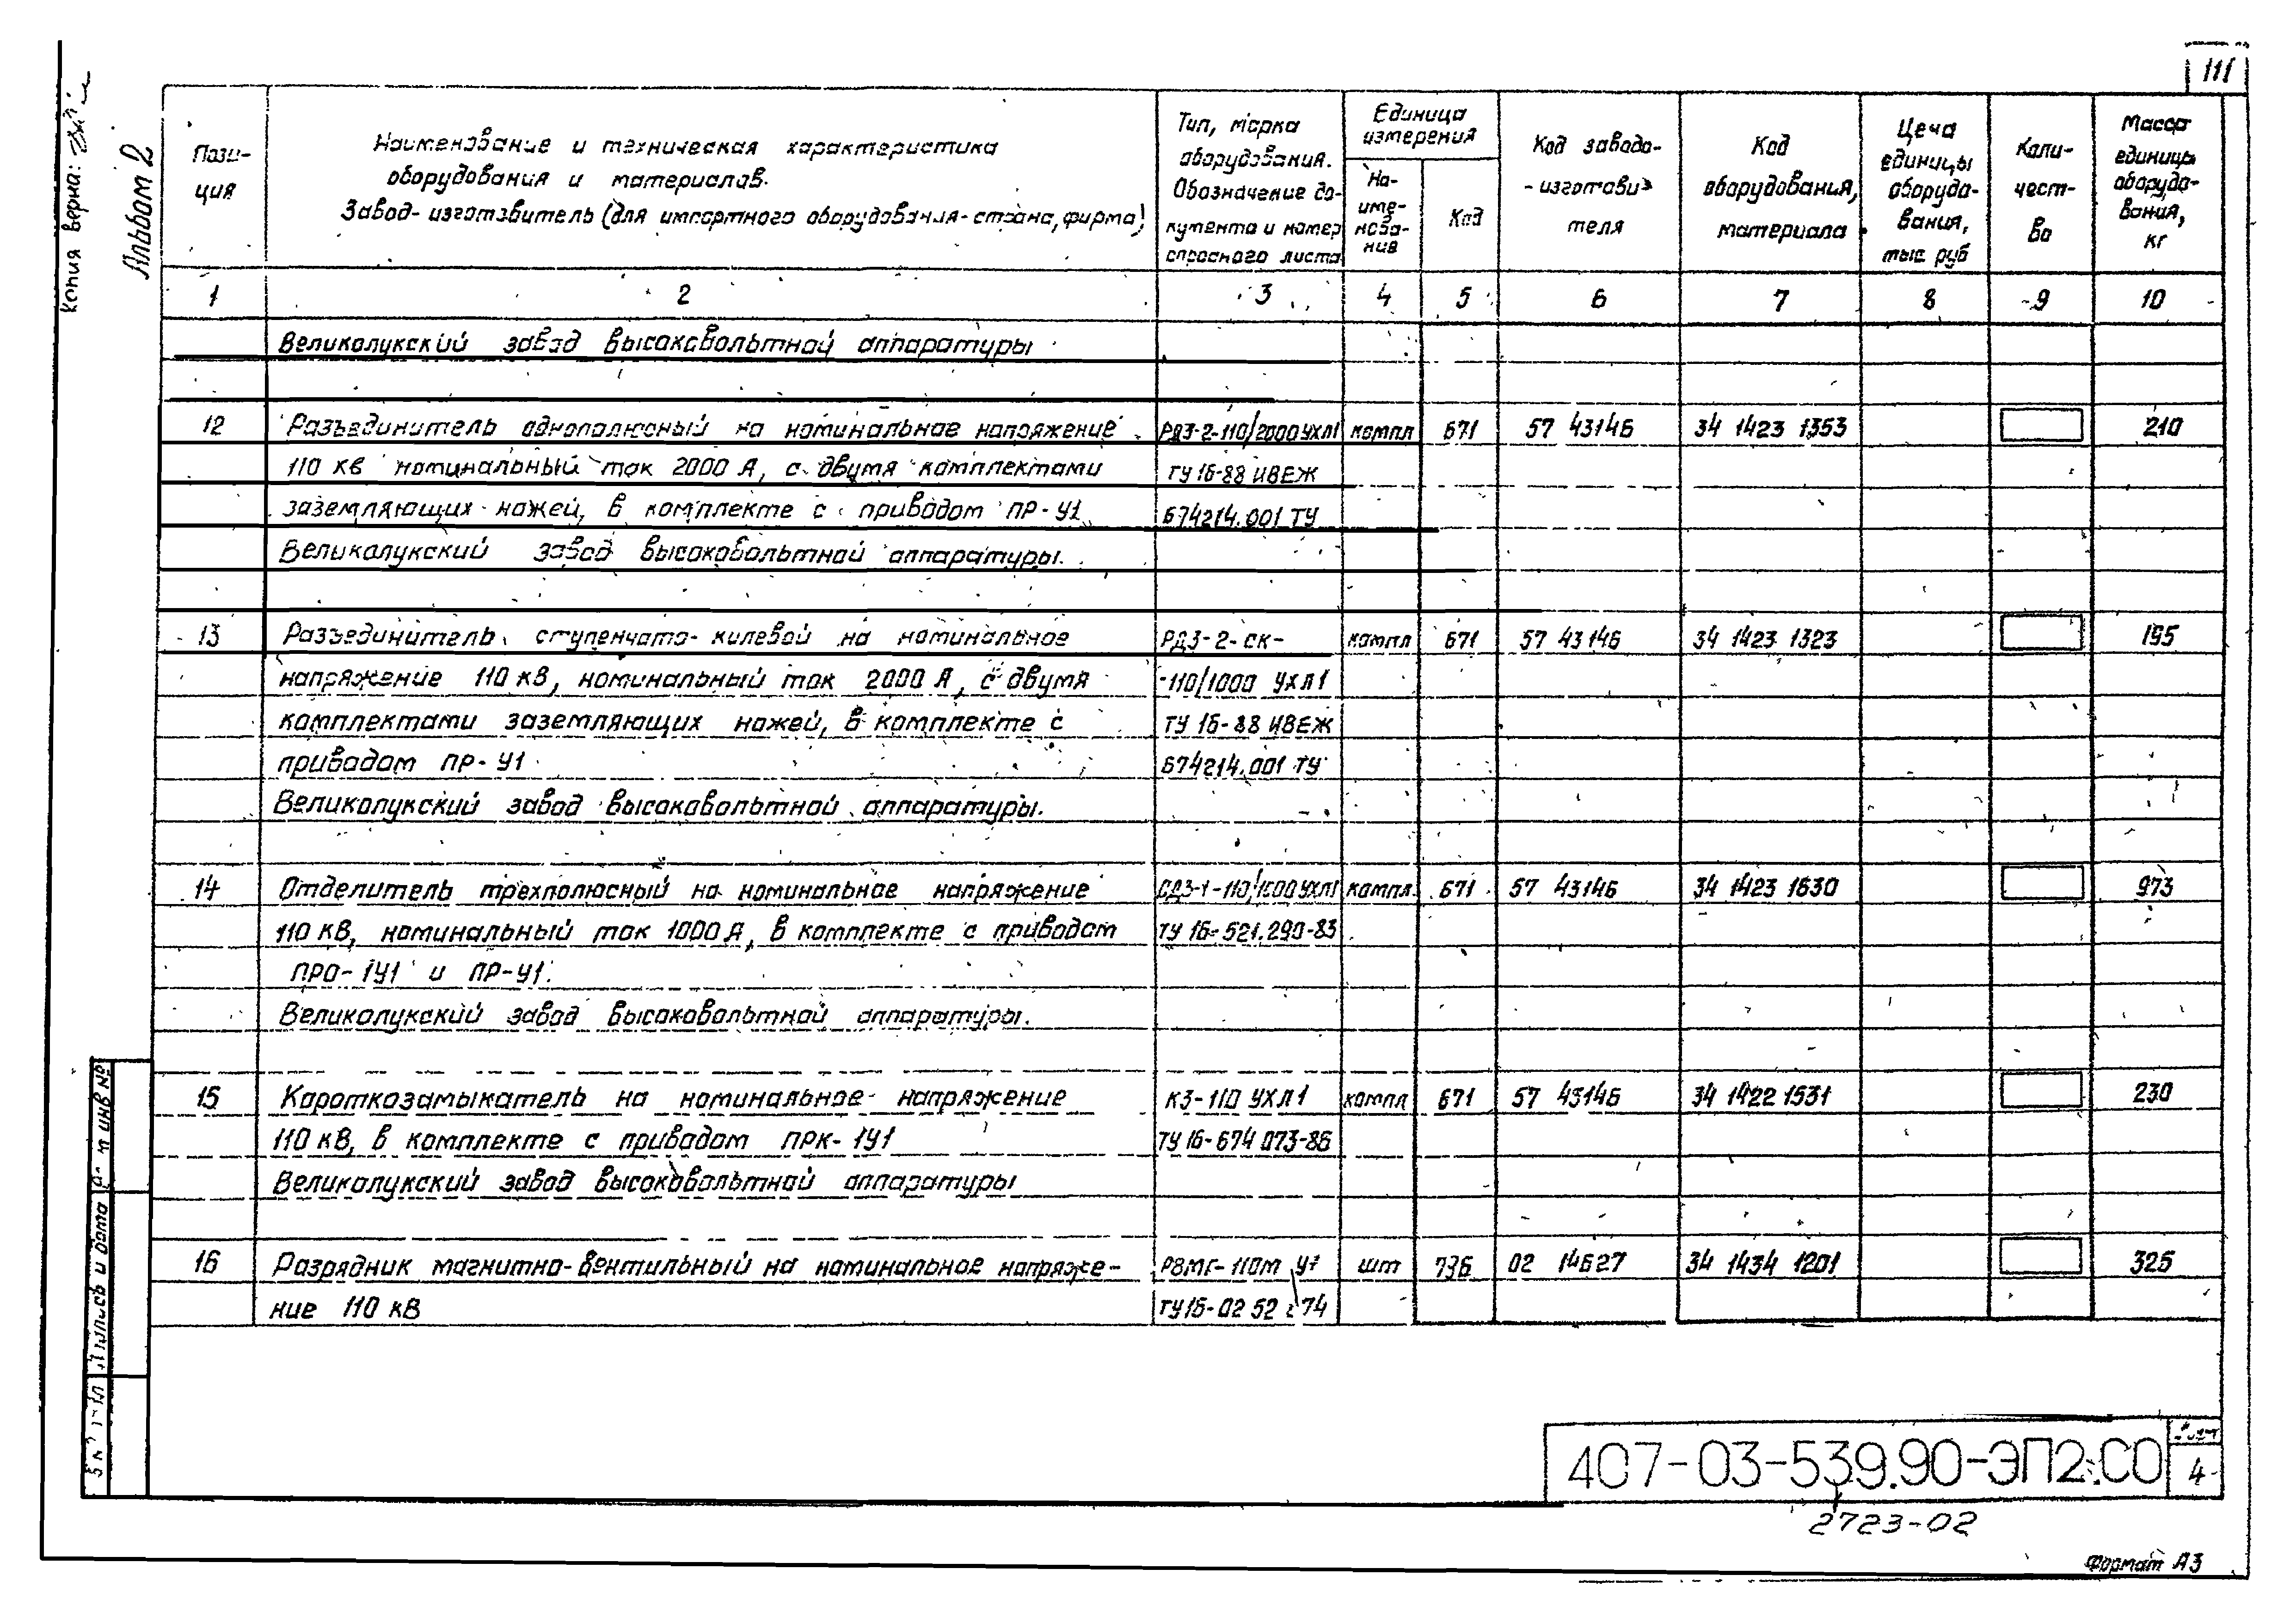 111
Копия верна:
Альбом 2
Пози-
ция
Наименование и техническая характеристика
оборудования и материалов.
Завод-изготовитель (для импортного оборудования-страна, фирма)
Тип, марка
оборудования.
Обозначение до-
кумента и номер
опросного листа
Единица
измерения
На-
име-
нова-
ние
Код
Код заводо-
-изготови-
теля
Код
оборудования,
материала
Цена
единицы
оборудо-
вания,
тыс руб
Коли-
чест-
во
Масса
единицы
оборудо-
вания,
кг
1 2 3 4 5 6 7 8 9 10
Великолукский завод высоковольтной аппаратуры
12 Разъединитель однополюсный на номинальное напряжение РДЗ-2-110/2000 УХЛ1 компл 671 57 43146 34 1423 1353 210
110 кв номинальный ток 2000 А, с двумя комплектами ТУ 16-88 ИВЕЖ
заземляющих ножей, в комплекте с приводом ПР-У1 674214.001 ТУ
Великолукский завод высоковольтной аппаратуры.
13 Разъединитель ступенчато-килевой на номинальное РДЗ-2-СК- компл 671 57 43146 34 1423 1323 195
напряжение 110 кВ, номинальный ток 2000 А, с двумя -110/1000 УХЛ1
комплектами заземляющих ножей, в комплекте с ТУ 16-88 ИВЕЖ
приводом ПР-У1 674214.001 ТУ
Великолукский завод высоковольтной аппаратуры.
14 Отделитель трехполюсный на номинальное напряжение ОДЗ-1-110/1000 УХЛ1 компл. 671 57 43146 34 1423 1630 973
110 КВ, номинальный ток 1000 А, в комплекте с приводом ТУ 16-521.290-83
ПРО-1У1 и ПР-У1.
Великолукский завод высоковольтной аппаратуры.
15 Короткозамыкатель на номинальное напряжение КЗ-110 УХЛ1 компл 671 57 43146 34 1422 1531 230
110 кВ, в комплекте с приводом ПРК-1У1 ТУ 16-674 073-86
Великолукский завод высоковольтной аппаратуры
16 Разрядник магнитно-вентильный на номинальное напряже- РВМГ-110М У1 шт 796 02 14627 34 1434 1201 325
ние 110 кВ ТУ 16-02 52 74
инв №
Подпись и дата
407-03-539.90-ЭП2.СО
Лист
4
2723-02
Формат А3